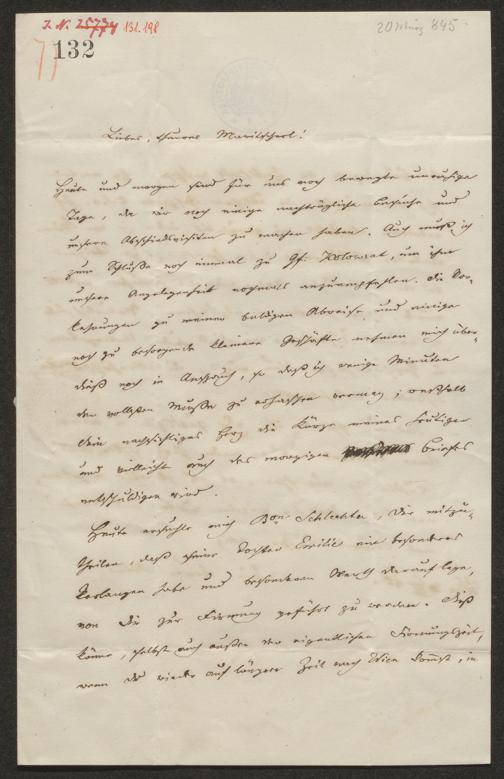 I. N. 25774 131.198
132
20 März 845.
Liebes, theures Mariescherl!
Heute und morgen sind für uns noch bewegte unruhige
Tage, da wir noch einige nachträgliche Besuche und
unsere Abschiedsvisiten zu machen haben. Auch muß ich
zum Schluße noch einmal zu Gf. Kolowrat, um ihm
unsere Angelegenheit nochmals anzuempfehlen. Die Vor-
kehrungen zu meiner baldigen Abreise, und einige
noch zu besorgende kleinere Geschäfte nehmen mich über-
dieß noch in Anspruch, so daß ich wenige Minuten
der vollsten Muße zu erhaschen vermag; weßhalb
Dein nachsichtiges Herz die Kürze meines heutigen
und vielleicht auch des morgigen Briefes
entschuldigen wird.
Heute ersuchte mich Bon Schlechta, Dir mitzu-
theilen, daß seine Tochter Emilie ein besonderes
Verlangen habe und besonderen Werth darauf lege,
von Dir zur Firmung geführt zu werden. Dieß
könne, selbst auch außer der eigentlichen Firmungszeit,
wenn Du wieder auf längere Zeit nach Wien kommst, in